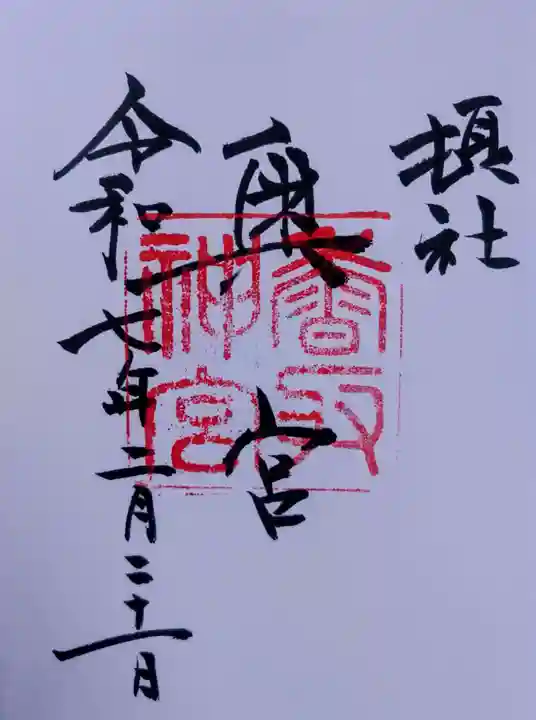 摂社
奥宮
令和七年二月二十一日
香取
神宮